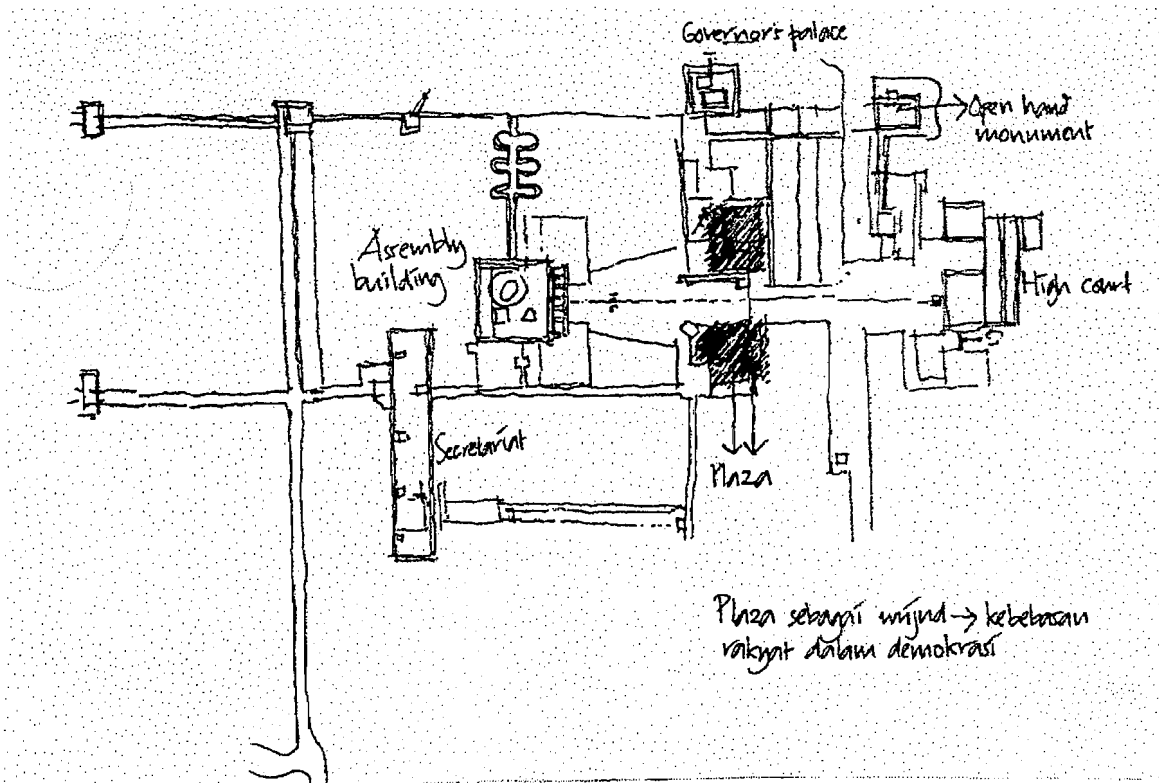 Governor's palace
Open hand
monument
Assembly
building
High court
Secretariat
Plaza
Plaza sebagai wujud → kebebasan
rakyat dalam demokrasi